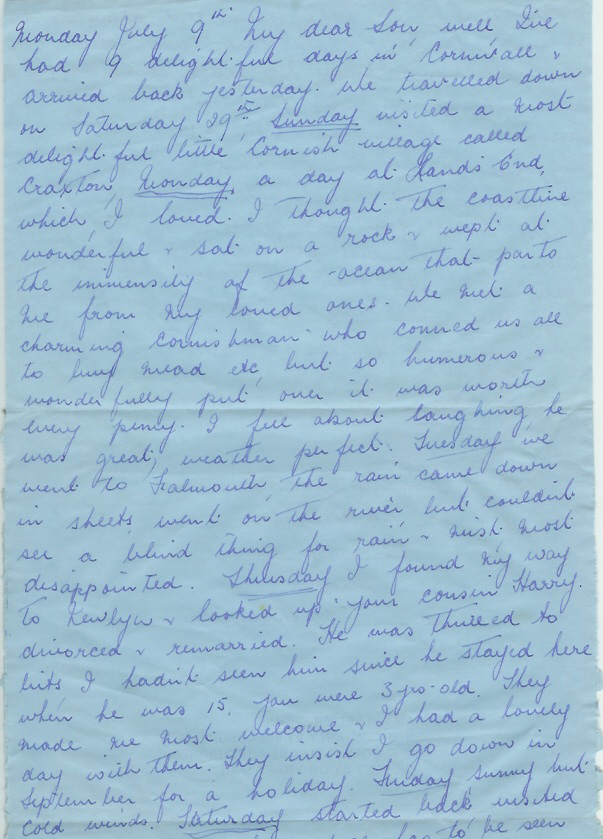 Monday July 9th. My dear Son, well I've
had 9 delightful days in Cornwall &
arrived back yesterday. We travelled down
on Saturday 29th. Sunday visited a most
delightful little Cornish village called
Craxton, Monday, a day at Lands End,
which I loved. I thought the coastline
wonderful & sat on a rock & wept at
the immensity of the ocean that parts
me from my loved ones. We met a
charming Cornishman who conned us all
to buy mead etc, but so humerous &
wonderfully put over it was worth
every penny. I fell about laughing he
was great, weather perfect. Tuesday we
went to Falmouth the rain came down
in sheets, went on the river but couldn't
see a blind thing for rain & mist most
disappointed. Thursday I found my way
to Newlyn & looked up your cousin Harry.
divorced & remarried. He was thrilled to
bits I hadn't seen him since he stayed here
when he was 15, you were 3 yrs-old. They
made me most welcome & I had a lovely
day with them. They insist I go down in
September for a holiday. Friday sunny but
cold winds. Saturday started back visited
has to be seen